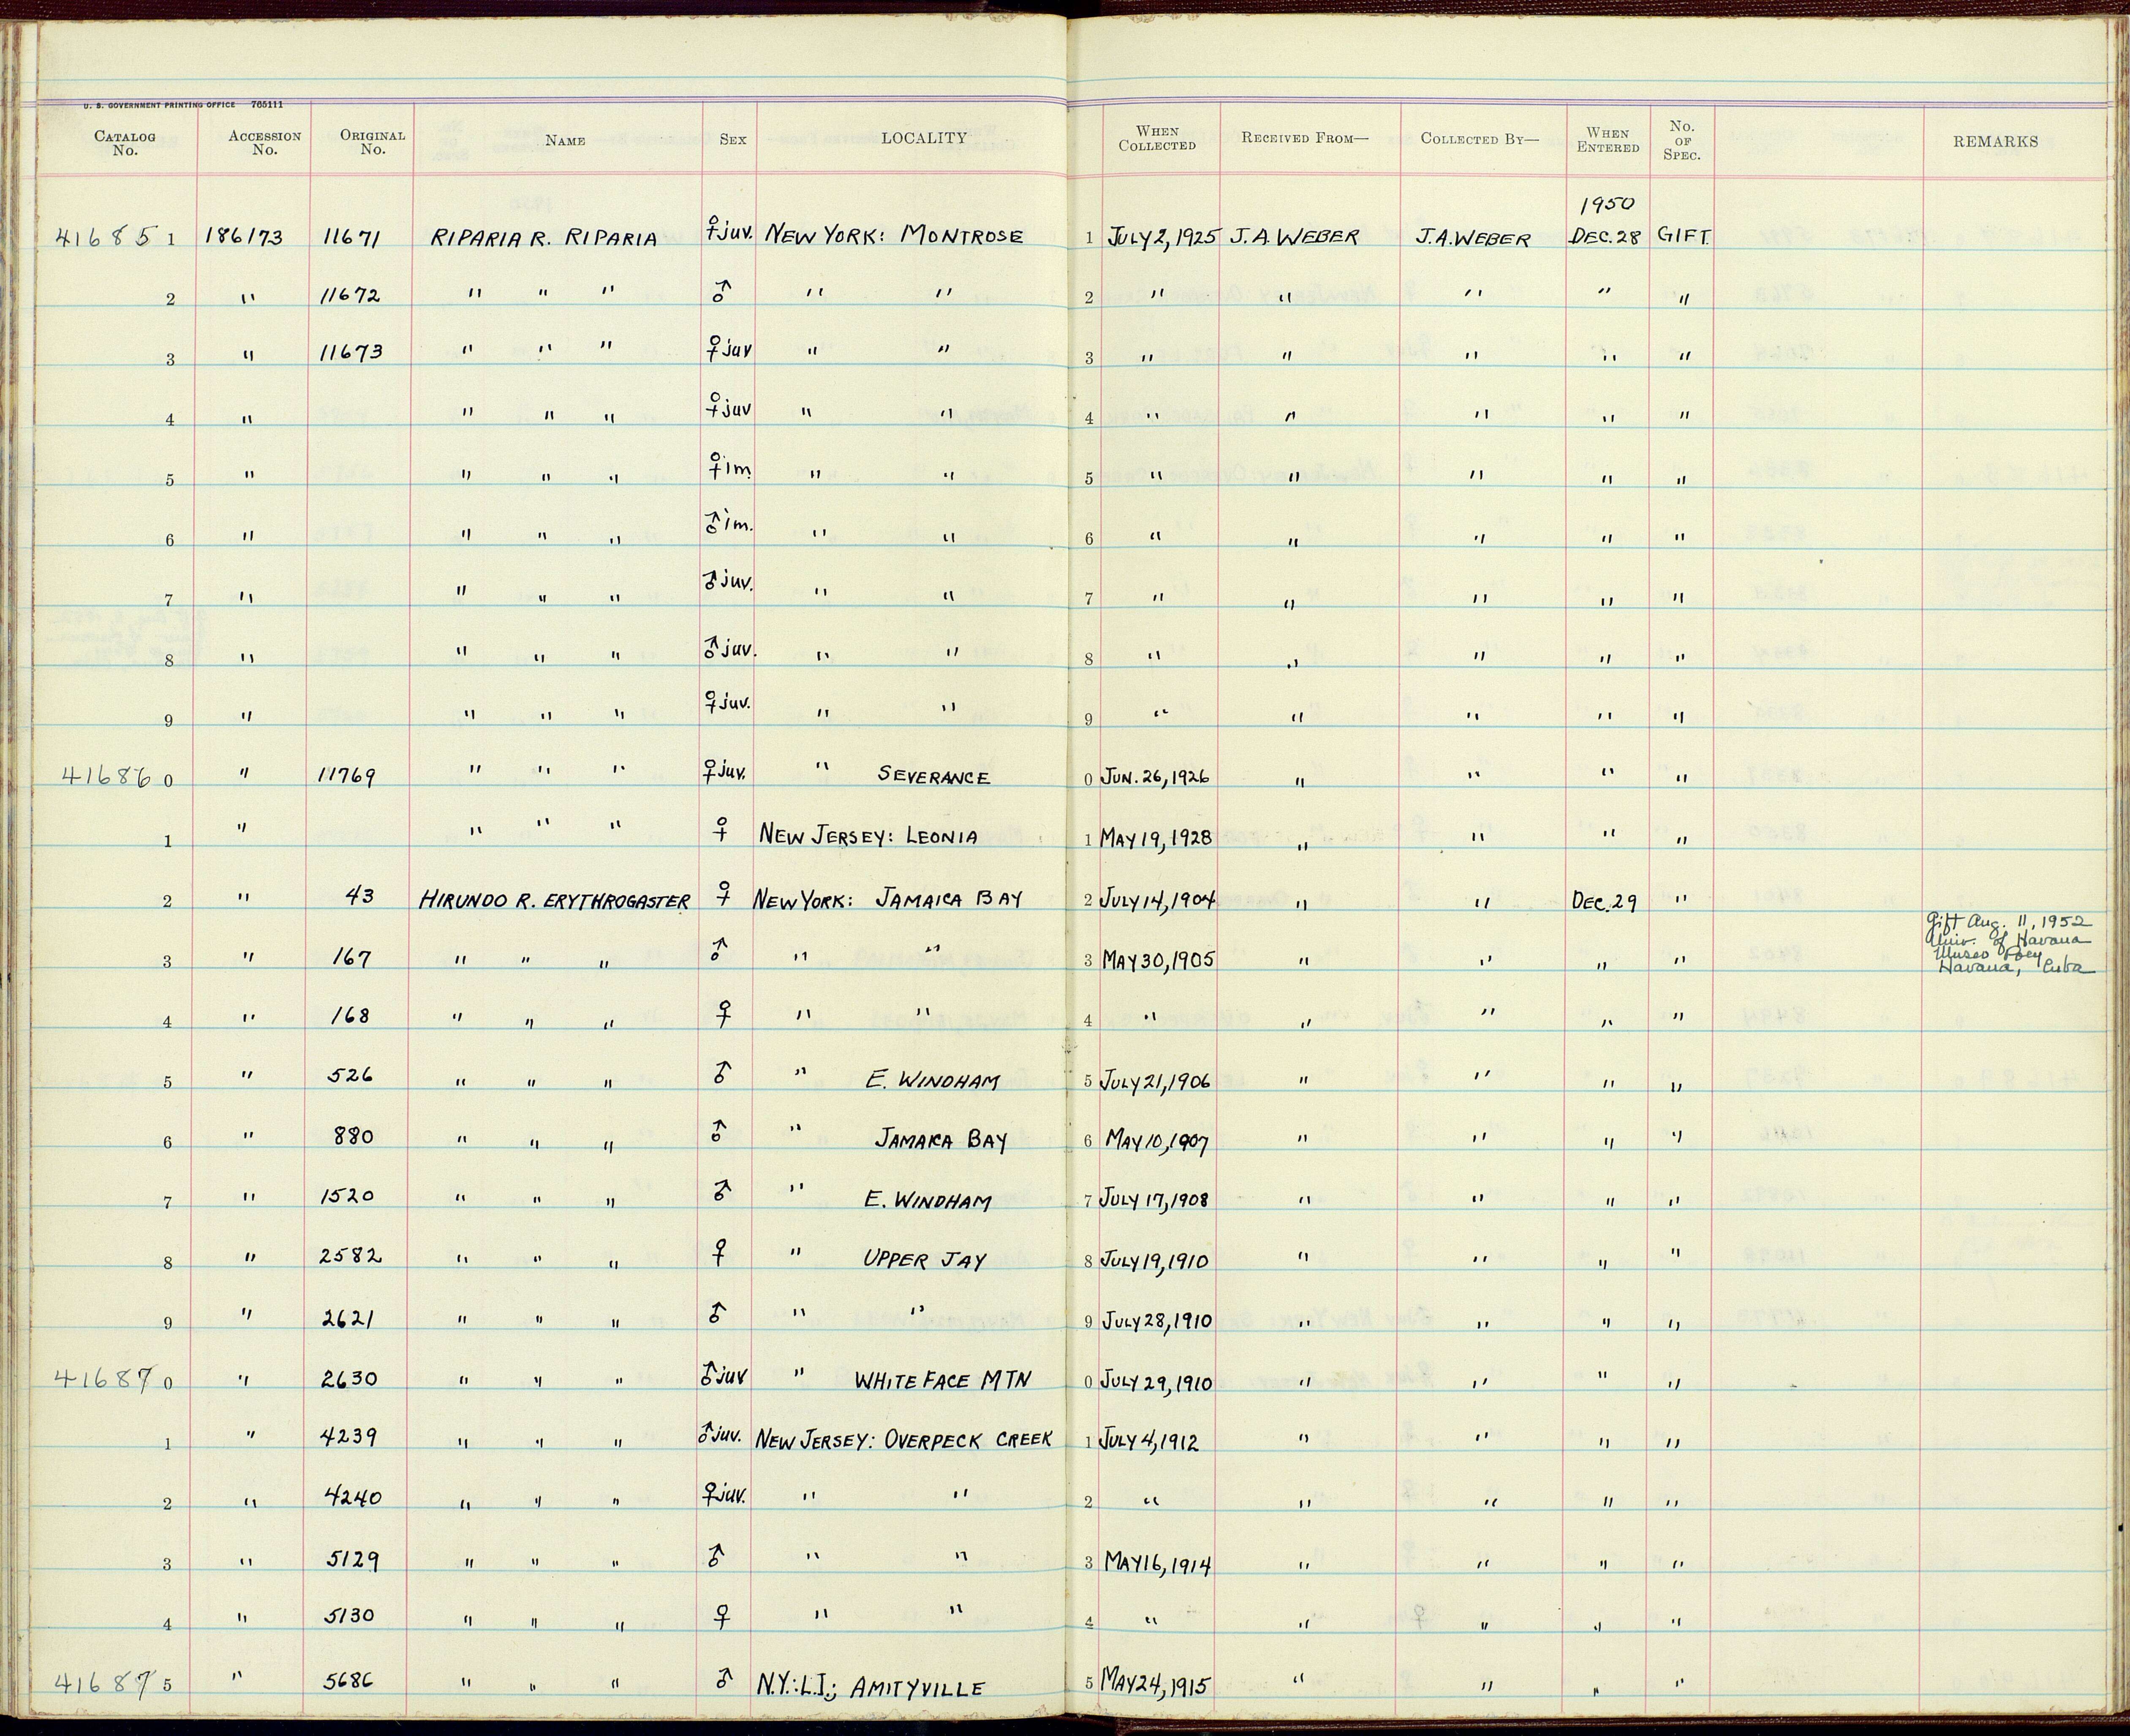 U. S. GOVERNMENT PRINTING OFFICE 765111
CATALOG No. ACCESSION No. ORIGINAL No. NAME SEX LOCALITY WHEN COLLECTED RECEIVED FROM— COLLECTED BY— WHEN ENTERED No. OF SPEC. REMARKS
1950
41685 1 186173 11671 RIPARIA R. RIPARIA ♀juv. NEW YORK: MONTROSE 1 JULY 2, 1925 J.A. WEBER J.A. WEBER DEC. 28 GIFT.
2 " 11672 " " " ♂ " " 2 " " " " "
3 " 11673 " " " ♀juv " " 3 " " " " "
4 " " " " ♀juv " " 4 " " " " "
5 " " " " ♀im " " 5 " " " " "
6 " " " " ♂im. " " 6 " " " " "
7 " " " " ♂juv. " " 7 " " " " "
8 " " " " ♂juv. " " 8 " " " " "
9 " " " " ♀juv. " " 9 " " " " "
41686 0 " 11769 " " " ♀juv. " SEVERANCE 0 JUN. 26, 1926 " " " "
1 " " " " ♀ NEW JERSEY: LEONIA 1 MAY 19, 1928 " " " "
2 " 43 HIRUNDO R. ERYTHROGASTER ♀ NEW YORK: JAMAICA BAY 2 JULY 14, 1904 " " DEC. 29 "
3 " 167 " " " ♂ " " 3 MAY 30, 1905 " " " " Gift Aug. 11, 1952
Univ. of Havana
Museo Poey
Havana, Cuba
4 " 168 " " " ♀ " " 4 " " " " "
5 " 526 " " " ♂ " E. WINDHAM 5 JULY 21, 1906 " " " "
6 " 880 " " " ♂ " JAMAICA BAY 6 MAY 10, 1907 " " " "
7 " 1520 " " " ♂ " E. WINDHAM 7 JULY 17, 1908 " " " "
8 " 2582 " " " ♀ " UPPER JAY 8 JULY 19, 1910 " " " "
9 " 2621 " " " ♂ " " 9 JULY 28, 1910 " " " "
41687 0 " 2630 " " " ♂juv " WHITE FACE MTN 0 JULY 29, 1910 " " " "
1 " 4239 " " " ♂juv. NEW JERSEY: OVERPECK CREEK 1 JULY 4, 1912 " " " "
2 " 4240 " " " ♀juv. " " 2 " " " " "
3 " 5129 " " " ♂ " " 3 MAY 16, 1914 " " " "
4 " 5130 " " " ♀ " " 4 " " " " "
41687 5 " 5686 " " " ♂ N.Y.: L.I.; AMITYVILLE 5 MAY 24, 1915 " " " "